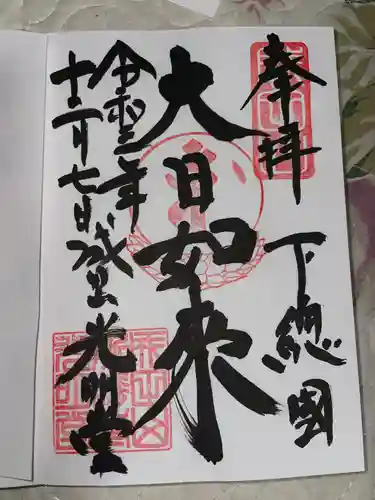 奉拝
下總國
大日如来
令和二年
十二月七日
成田山
光明堂